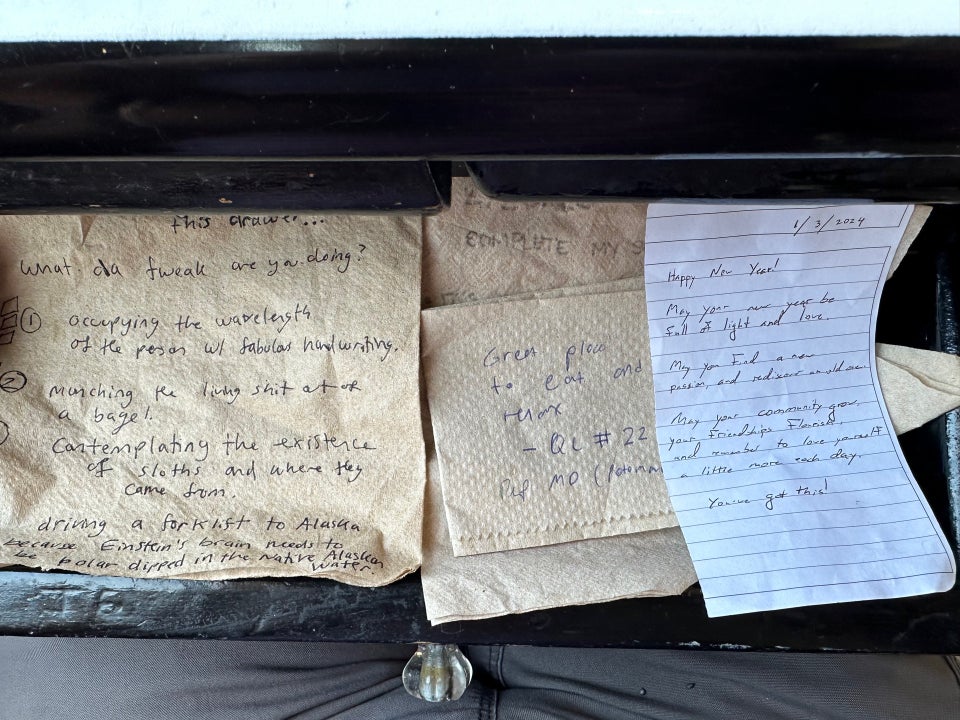 this drawer...
What da fweak are you doing?
① occupying the wavelength
of the person w/ fabulas handwriting.
② munching the living shit out of
a bagel.
Contemplating the existence
of sloths and where they
came from.
driving a forklift to Alaska
because Einstein's brain needs to
be polar dipped in the Native Alaskan
water.
COMPLETE MY S
Great place
to eat and
relax
- QC #22
MD (Potomac
1/3/2024
Happy New Year!
May your new year be
full of light and love.
May you find a new
passion, and rediscover an old one.
May your community grow,
your friendships flourish,
and remember to love yourself
a little more each day.
You've got this!